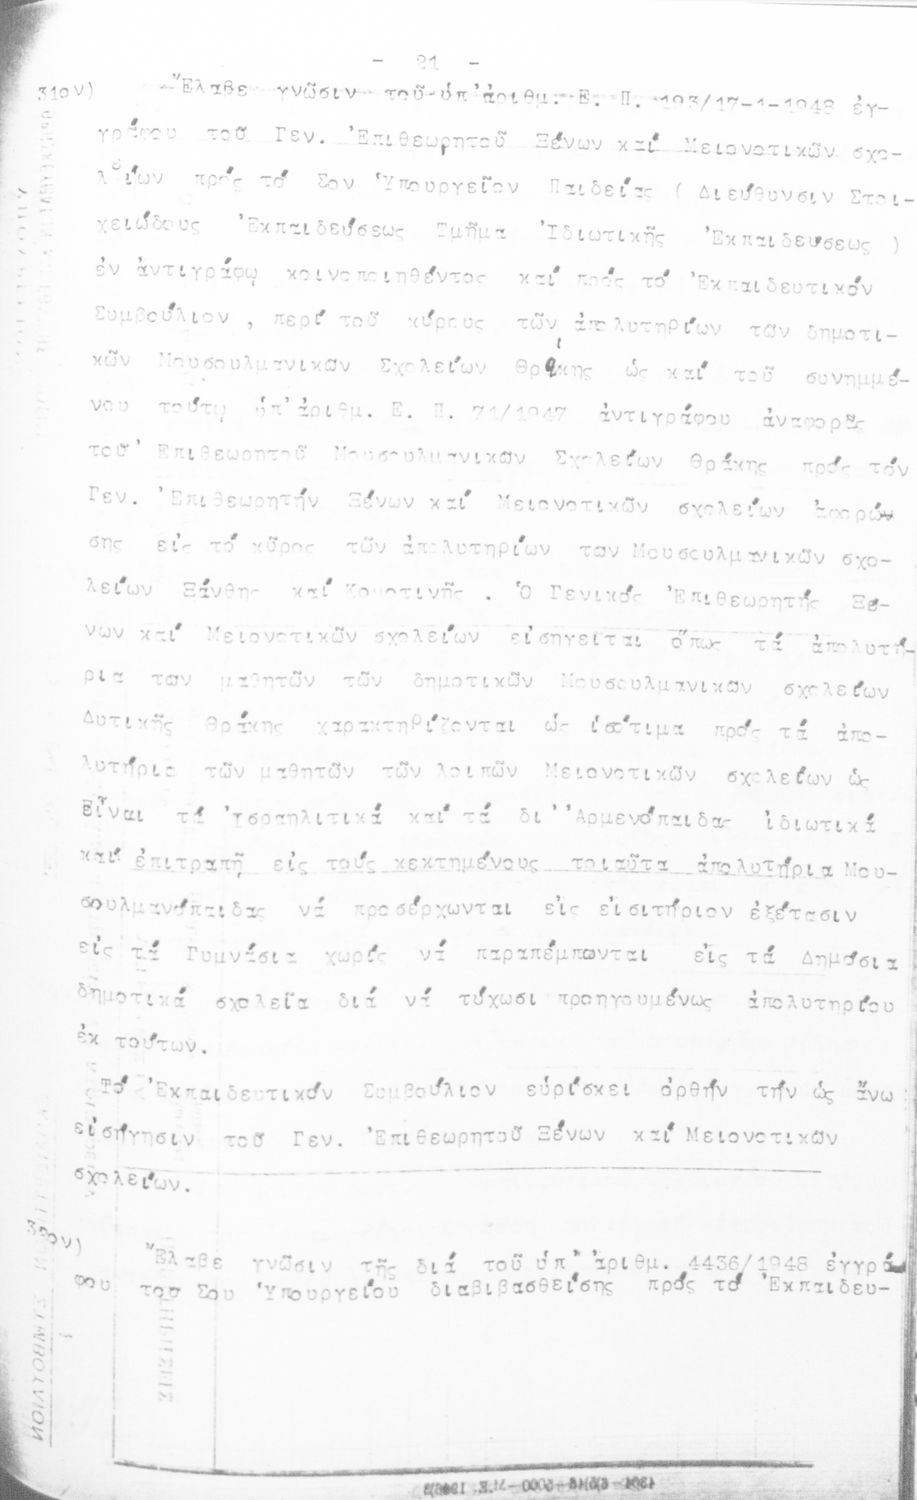 - 21 -
31ον) Ἔλαβε γνῶσιν τοῦ ὑπ'ἀριθμ. Ε. Π. 193/17-1-1948 ἐγ-
γράφου τοῦ Γεν. Ἐπιθεωρητοῦ Ξένων καί Μειονοτικῶν σχο-
λείων πρός τό Σον Ὑπουργεῖον Παιδείας ( Διεύθυνσιν Στοι-
χειώδους Ἐκπαιδεύσεως Τμῆμα Ἰδιωτικῆς Ἐκπαιδευσεως )
ἐν ἀντιγράφῳ κοινοποιηθέντος καί πρός τό Ἐκπαιδευτικόν
Συμβούλιον , περί τοῦ κύρους τῶν ἀπολυτηρίων τῶν δημοτι-
κῶν Μουσουλμανικῶν Σχολείων Θράκης ὡς καί τοῦ συνημμέ-
νου τούτῳ ὑπ'ἀριθμ. Ε. Π. 71/1947 ἀντιγράφου ἀναφορᾶς
τοῦ Ἐπιθεωρητοῦ Μουσουλμανικῶν Σχολείων Θράκης πρός τόν
Γεν. Ἐπιθεωρητήν Ξένων καί Μειονοτικῶν σχολείων ἀφορών
σης εἰς τό κῦρος τῶν ἀπολυτηρίων των Μουσουλμανικῶν σχο-
λείων Ξάνθης καί Κομοτινῆς . Ὁ Γενικός Ἐπιθεωρητής Ξέ-
νων καί Μειονοτικῶν σχολείων εἰσηγεῖται ὅπως τά ἀπολυτή-
ρια των μαθητῶν τῶν δημοτικῶν Μουσουλμανικῶν σχολείων
Δυτικῆς Θράκης χαρακτηρίζονται ὡς ἰσότιμα πρός τά ἀπο-
λυτήρια τῶν μαθητῶν τῶν λοιπῶν Μειονοτικῶν σχολείων ὡς
Εἶναι τά Ἰσραηλιτικά καί τά δι' Ἀρμενόπαιδας ἰδιωτικά
καί ἐπιτραπῆ εἰς τούς κεκτημένους τοιαῦτα ἀπολυτήρια Μου-
σουλμανόπαιδας νά προσέρχωνται εἰς εἰσιτήριον ἐξέτασιν
εἰς τά Γυμνάσια χωρίς νά παραπέμπωνται εἰς τά Δημόσια
δημοτικά σχολεῖα διά νά τύχωσι προηγουμένως ἀπολυτηρίου
ἐκ τούτων.
Τό Ἐκπαιδευτικόν Συμβούλιον εὑρίσκει ὀρθήν τήν ὡς ἄνω
εἰσήγησιν τοῦ Γεν. Ἐπιθεωρητοῦ Ξένων καί Μειονοτικῶν
σχολείων.
32ον) Ἔλαβε γνῶσιν τῆς διά τοῦ ὑπ' ἀριθμ. 4436/1948 ἐγγρά
φου του Σου Ὑπουργείου διαβιβασθείσης πρός τό Ἐκπαιδευ-